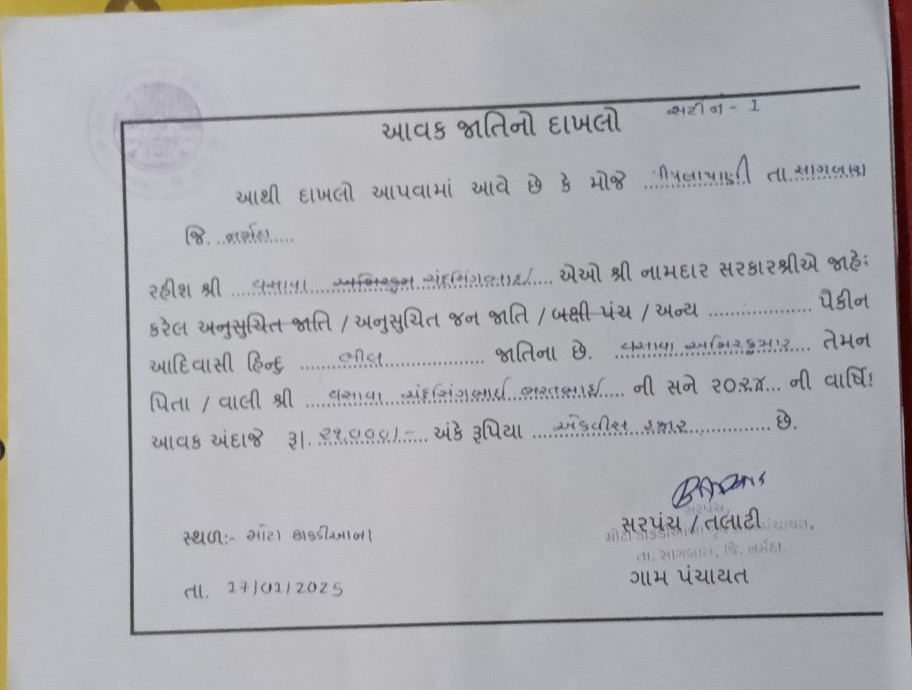 આવક જાતિનો દાખલો
આથી દાખલો આપવામાં આવે છે કે મોજે પીપલાપાણી તા. સાગબારા
જિ. નર્મદા
રહીશ શ્રી વસાવા ચંદ્રસિંગભાઈ એઓ શ્રી નામદાર સરકારશ્રીએ જાહે
કરેલ અનુસુચિત જાતિ / અનુસુચિત જન જાતિ / બક્ષી પંચ / અન્ય ............ પૈકીન
આદિવાસી હિન્દુ ભીલ જાતિના છે. વસાવા તેમન
પિતા / વાલી શ્રી વસાવા ભરતભાઈ ની સને ૨૦૨૪ ની વાર્ષિ
આવક અંદાજે રૂા. ૨૧,૦૦૦/- અંકે રૂપિયા એકવીસ હજાર છે.
સરપંચ / તલાટી
તા. સાગબારા, જિ. નર્મદા
સ્થળ:- મોટા કાકડીઆંબા
ગામ પંચાયત
તા. 17/01/2025